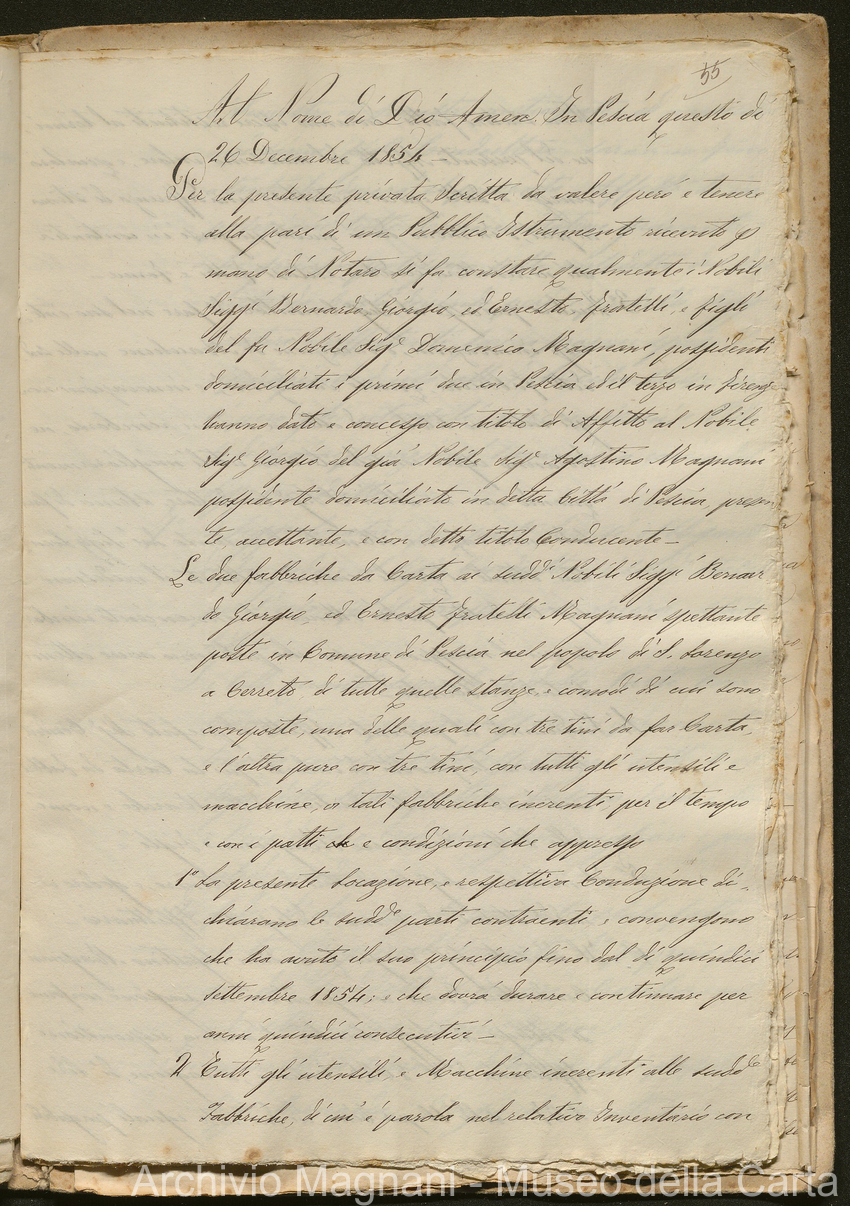 55
Al Nome di Dio Amen. In Pescia questo dì
26 Decembre 1854 —
Per la presente privata Scritta da valere però e tenere
alla pari di un Pubblico Istrumento ricevuto p
mano di Notaro si fa constare qualmente i Nobili
Sigg.i Bernardo, Giorgio, ed Ernesto, fratelli, e figli
del fu Nobile Sig.e Domenico Magnani, possidenti
domiciliati i primi due in Pescia ed il terzo in Firenze
hanno dato e concesso con titolo di Affitto al Nobile
Sig.e Giorgio del già Nobile Sig.e Agostino Magnani
possidente domiciliato in detta Città di Pescia, presen
te, accettante, e con detto titolo Conducente —
Le due fabbriche da Carta ai sudd.i Nobili Sigg.i Bernar
do Giorgio, ed Ernesto fratelli Magnani spettante
poste in Comune di Pescia nel popolo di S. Lorenzo
a Cerreto di tutte quelle stanze e comodi di cui sono
composte, una delle quali con tre tini da far Carta,
e l'altra pure con tre tini, con tutti gli utensili e
macchine, a tali fabbriche inerenti per il tempo
e con i patti e condizioni che appresso
1° La presente Locazione, e respettiva Conduzione di=
chiarano le sudd.e parti contraenti, e convengono
che ha avuto il suo principio fino dal dì quindici
settembre 1854; e che dovrà durare e continuare per
anni quindici consecutivi —
2 Tutti gli utensili, e Macchine inerenti alle sudd.e
Fabbriche, di cui è parola nel relativo Inventario con
Archivio Magnani - Museo della Carta